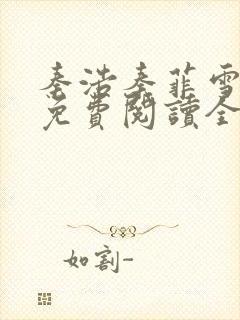 秦浩秦菲雪
免費閱讀全
如割-